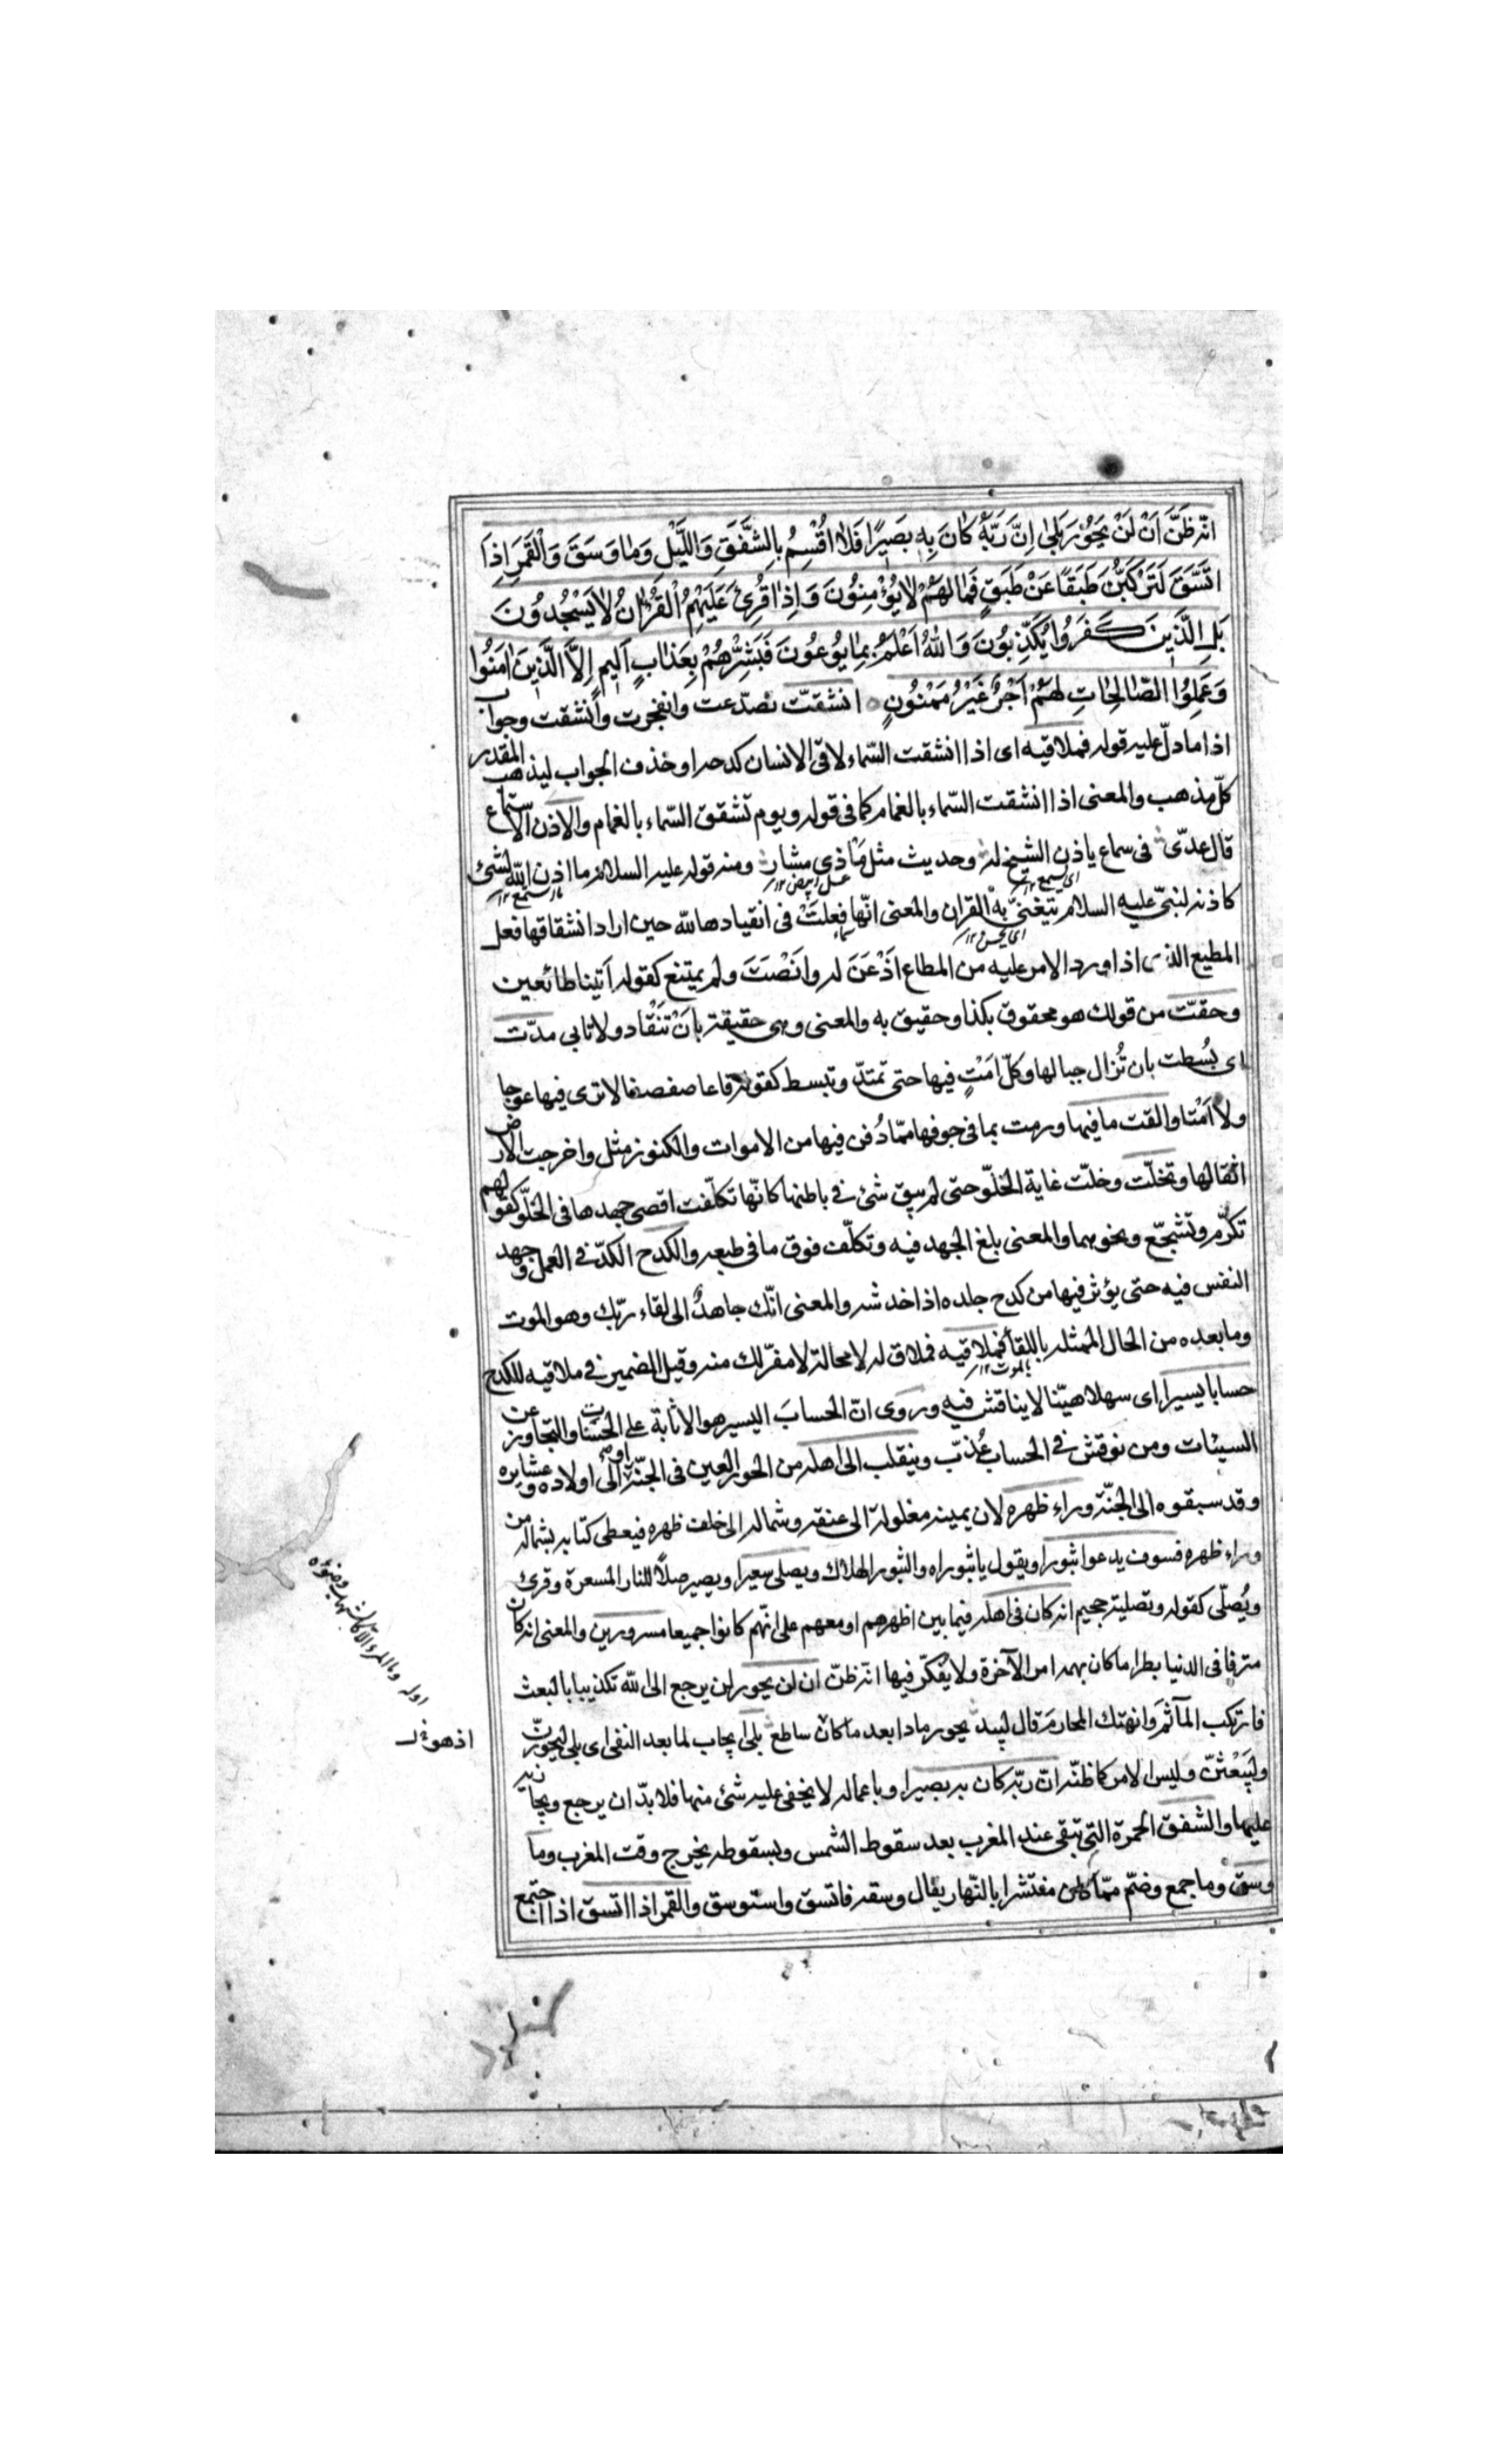 انّه ظَنَّ اَنْ لَنْ يَحُوْرَ بَلٰى اِنَّ رَبَّهٗ كَانَ بِهٖ بَصِيْرًا فَلَا اُقْسِمُ بِالشَّفَقِ وَالَّيْلِ وَمَا وَسَقَ وَالْقَمَرِ اِذَا
اتَّسَقَ لَتَرْكَبُنَّ طَبَقًا عَنْ طَبَقٍ فَمَا لَهُمْ لَا يُؤْمِنُوْنَ وَاِذَا قُرِئَ عَلَيْهِمُ الْقُرْاٰنُ لَا يَسْجُدُوْنَ
بَلِ الَّذِيْنَ كَفَرُوْا يُكَذِّبُوْنَ وَاللّٰهُ اَعْلَمُ بِمَا يُوْعُوْنَ فَبَشِّرْهُمْ بِعَذَابٍ اَلِيْمٍ اِلَّا الَّذِيْنَ اٰمَنُوْا
وَعَمِلُوا الصَّالِحَاتِ لَهُمْ اَجْرٌ غَيْرُ مَمْنُوْنٍ انشقتّ تصدّعت وانفجرت وانشقت وجواب
اذا ما دلّ عليه قوله فملاقيه اى اذا انشقت السّماء لاقى الانسان كدحه او حذف الجواب ليذهب المقدر
كلّ مذهب والمعنى اذا انشقت السّماء بالغمام كما فى قوله ويوم تشقق السّماء بالغمام والاذن الاستماع
قال عدىّ فى سماع ياذن الشيخ له وحديث مثل مَاذىّ مشار ومنه قوله عليه السلام ما اذن اللّه لشئ
كاذنه لنبىّ عليه السلام يتغنىّ به القران والمعنى انّها فعلتْ فى انقيادها للّه حين اراد انشقاقها فعل
المطيع الذى اذا ورد الامر عليه من المطاع اَذْعَنَ له وانَصْتَ ولم يمتنع كقوله اَتينا طائعين
وحقتّ من قولك هو محقوق بكذا وحقيق به والمعنى وهى حقيقة بانْ تَنْقاد ولا تابى مدّت
اى بُسطت بان تُزال جبالها وكلّ امَتٍ فيها حتى تمتدّ وتبسط كقوله قاعا صفصفا لا ترى فيها عوجا
ولا اَمْتا والقت ما فيها ورمت بما فى جوفها ممّا دُفن فيها من الاموات والكنوز مثل واخرجت الارض
اثقالها وتخلّت وخلّت غاية الخلّو حتى لم يبق شئ فى باطنها كانّها تكلّفت اقصى جهدها فى الخلّو كقولهم
تكرّم وتشجّع ونحوهما والمعنى بلغ الجهد فيه وتكلّف فوق ما فى طبعه والكدح الكدّ فى العمل وجهد
النفس فيه حتى يؤثر فيها من كدح جلده اذا خدشه والمعنى انّك جاهدٌ الى لقاء ربّك وهو الموت
وما بعده من الحال الممثله باللقاء فملاقيه فملاق له لا محالة لا مفرّ لك منه وقيل الضمير فى ملاقيه للكدح
حسابا يسيرا اى سهلا هيّنا لا يناقش فيه وروى انّ الحسابَ اليسير هو الاثابة على الحسنات والتجاوز عن
السيئات ومن نوقش فى الحساب عُذّب وينقلب الى اهله من الحور العين فى الجنّة او الى اولاده وعشايره
وقد سبقوه الى الجنّة وراء ظهره لان يمينه مغلولة الى عنقه وشماله الى خلف ظهره فيعطى كتابه بشماله من
وراء ظهره فسوف يدعوا ثبورا ويقول يا ثبوراه والثبور الهلاك ويصلى سعيرا ويصير صلاً للنار المسعرة وقرئ
ويُصلّى كقوله وتصلية جحيم انه كان فى اهله فيما بين اظهرهم او معهم على انّهم كانوا جميعا مسرورين والمعنى انه كان
مترفا فى الدنيا بطرا ما كان يهمه امر الآخرة ولا يُفكّر فيها انّه ظنّ ان لن يحور لن يرجع الى اللّه تكذيبا بالبعث
فارتكب المآثَم وانهتك المحارم قال لبيد يحور رمادا بعد ما كان ساطع بلى ايجاب لما بعد النفى اى بلى ليحورنّ
وليَبْعثنّ وليس الامر كما ظنّه انّ ربّه كان به بصيرا وباعماله لا يخفى عليه شئ منها فلا بدّ ان يرجع ويجازيه
عليها والشفق الحمرة التى تبقى عند المغرب بعد سقوط الشمس وبسقوطه يخرج وقت المغرب وما
وسق وما جمع وضمّ ممّا كان منتشرا بالنّهار يقال وسقه فاتسق واستوسق والقمر اذا اتسق اذا اجتمع
اى يستمع ١٢
عسل ابيض ١٢
اى يحسن ١٢
بالموت ١٢
اوله وما المرء الا كالشهاب وضوئه
اذ هو